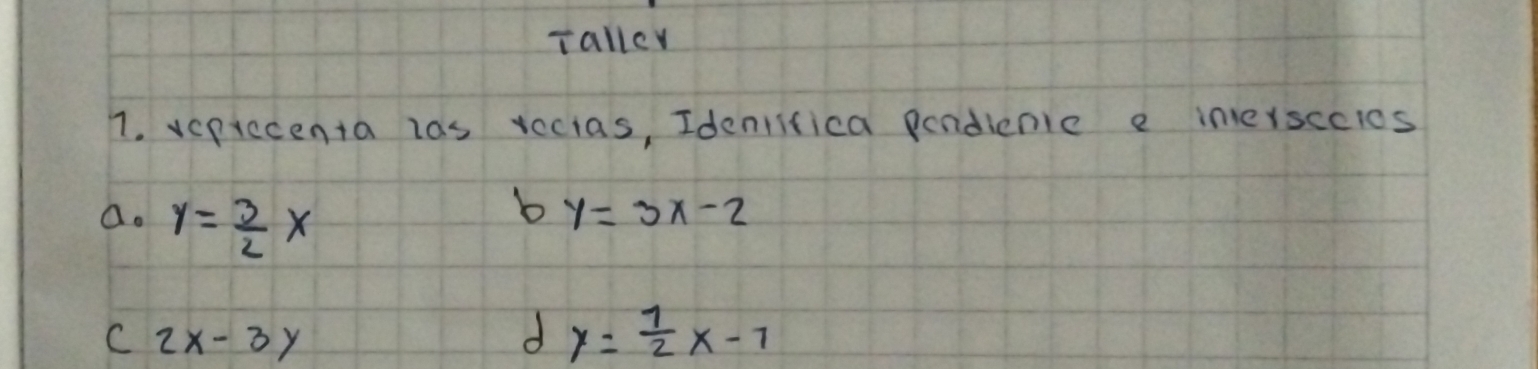 Taller
1. reprecenta las rectas, Identifica pendiente e intersectos
a. y = 3/2 x b y = 3x - 2
c 2x - 3y d y = 1/2 x - 1